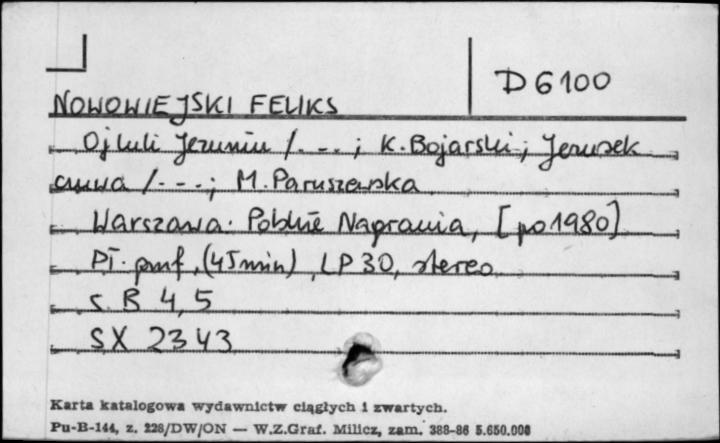 D 6100
NOWOWIEJSKI FELIKS
Oj luli Jezuniu / . - . ; K. Bojarski ; Jezusek
czuwa / - - - ; M. Paruszewska
Warszawa : Polskie Nagrania, [po 1980]
Pł. profesjonalna
s. B 4, 5
SX 2343
Karta katalogowa wydawnictw ciągłych i zwartych.
Pu-B-144, z. 228/DW/ON — W.Z.Graf. Milicz, zam. 388-86 5.650.000